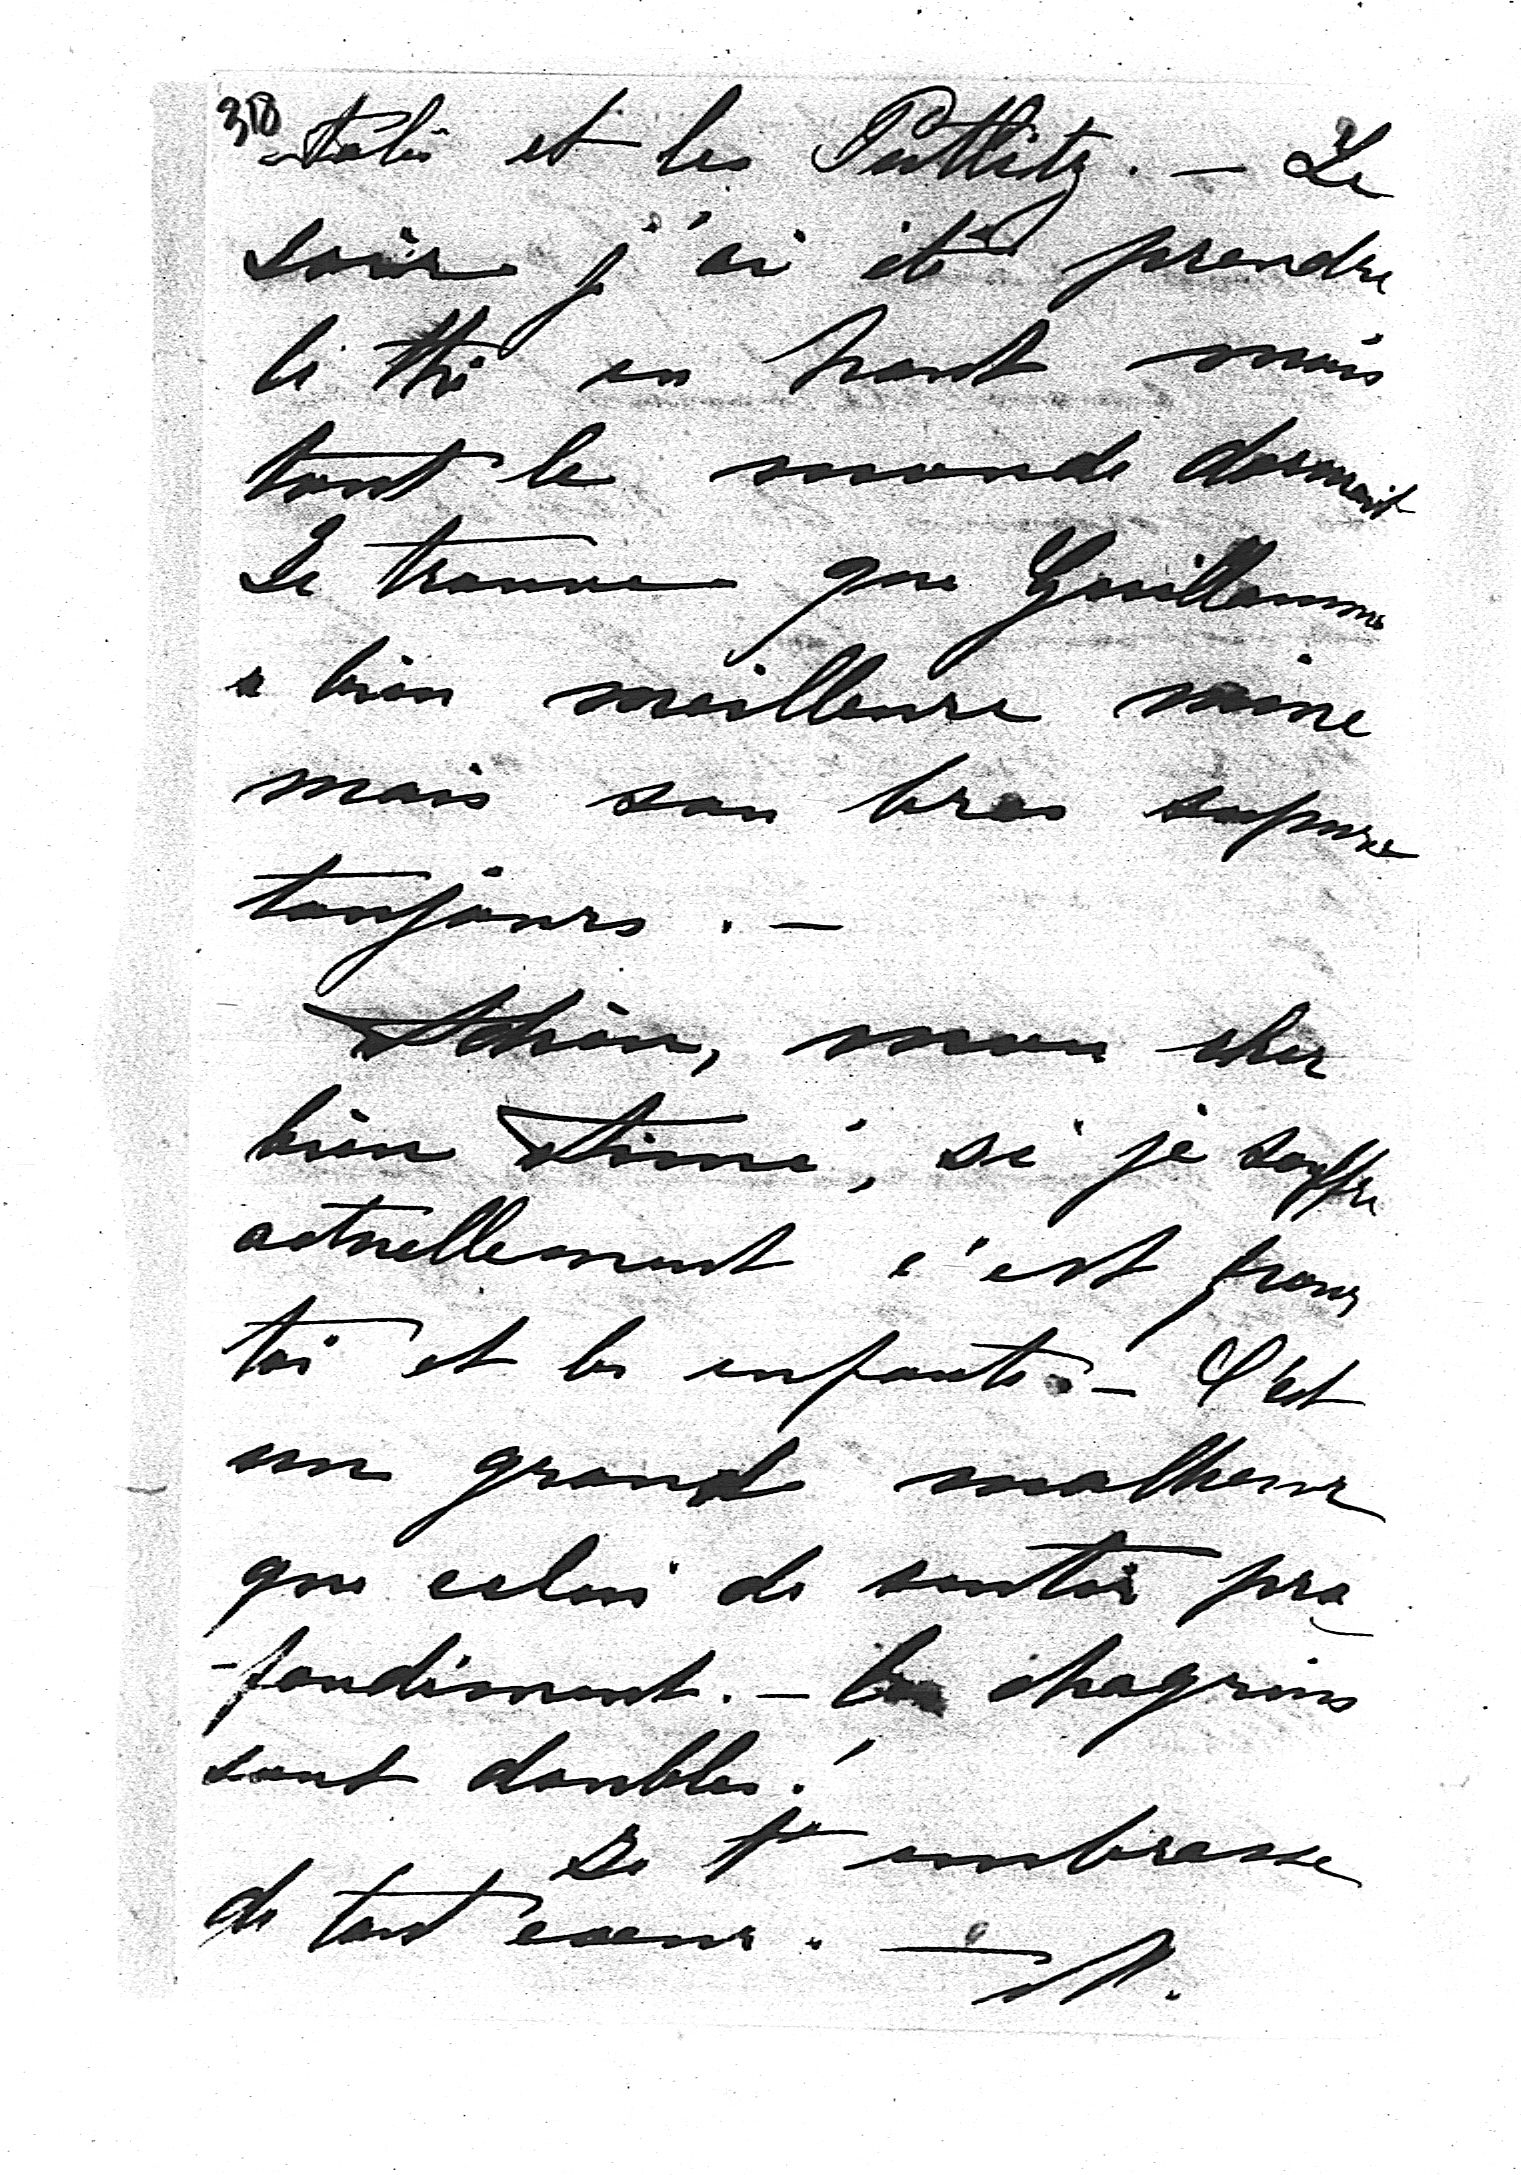 318
-talie et les Puttlitz. — Le
soir j'ai été prendre
le thé en haut mais
tout le monde dormait
Je trouve que Guillaume
a bien meilleure mine
mais son bras supure
toujours. —
Adieu, mon cher
bien Aimé, si je souffre
actuellement c'est pour
toi et les enfants. — C'est
un grand malheur
que celui de sentir pro
-fondément. — Les chagrins
sont doubles!
Je t'embrasse
de tout coeur. —